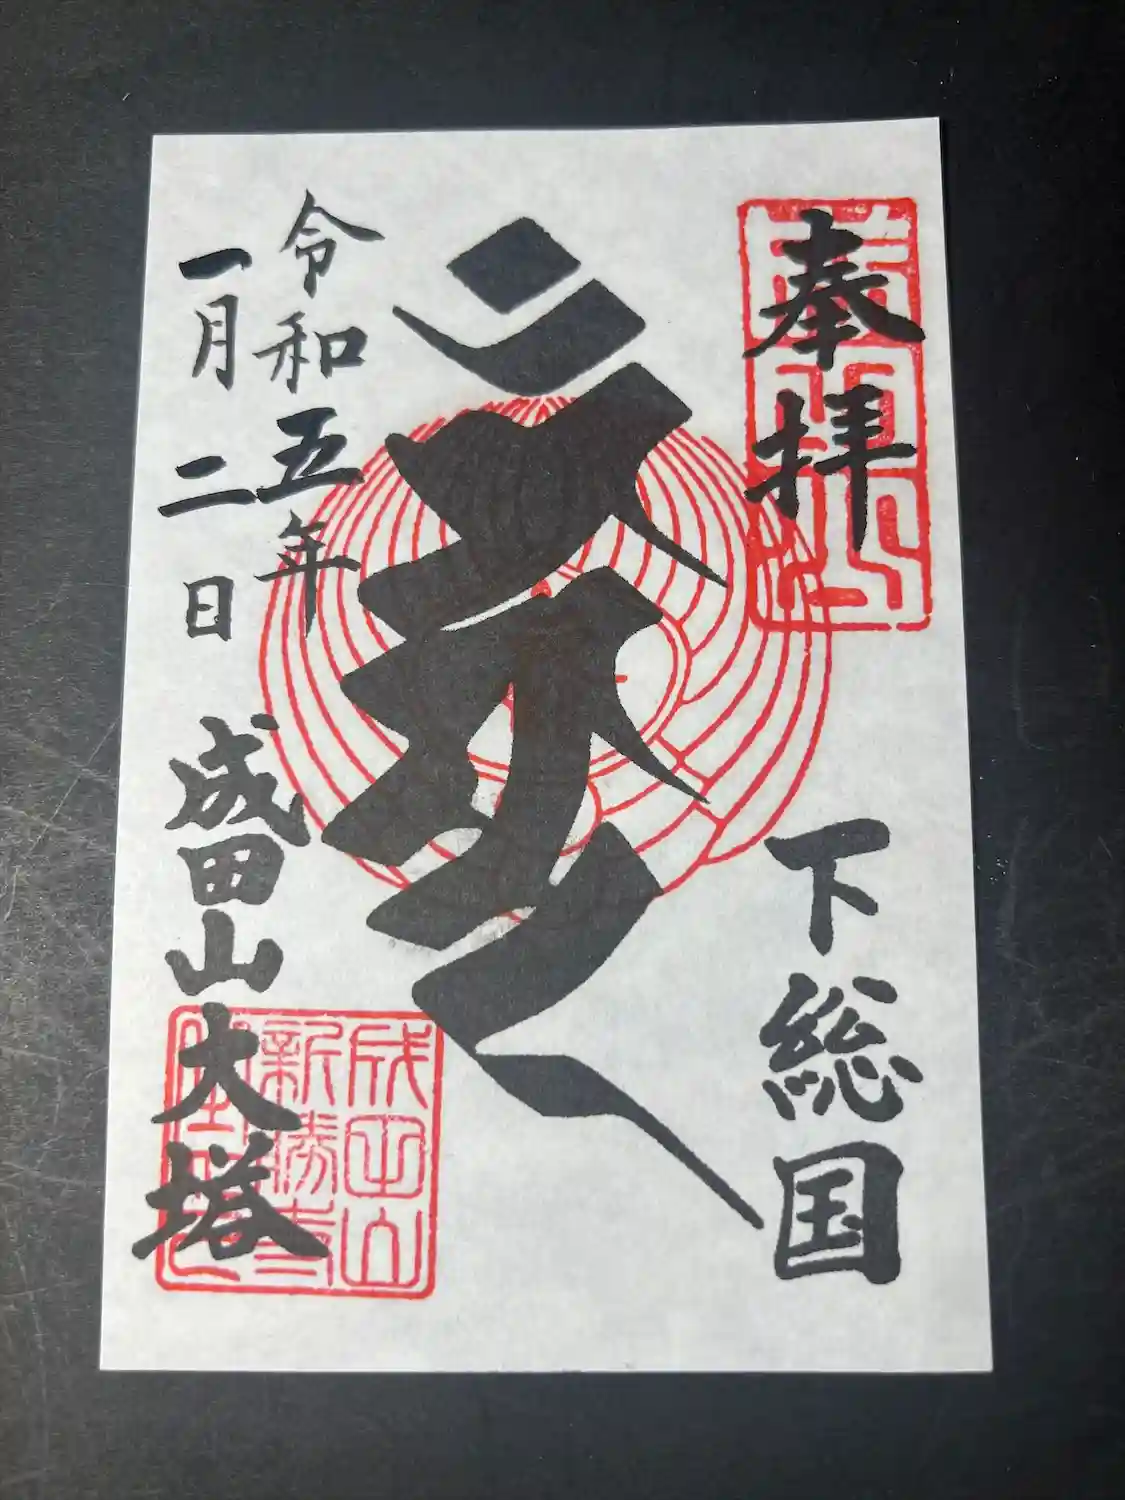 奉拝
下総国
令和五年
一月二日
成田山大塔
成田山
新勝寺